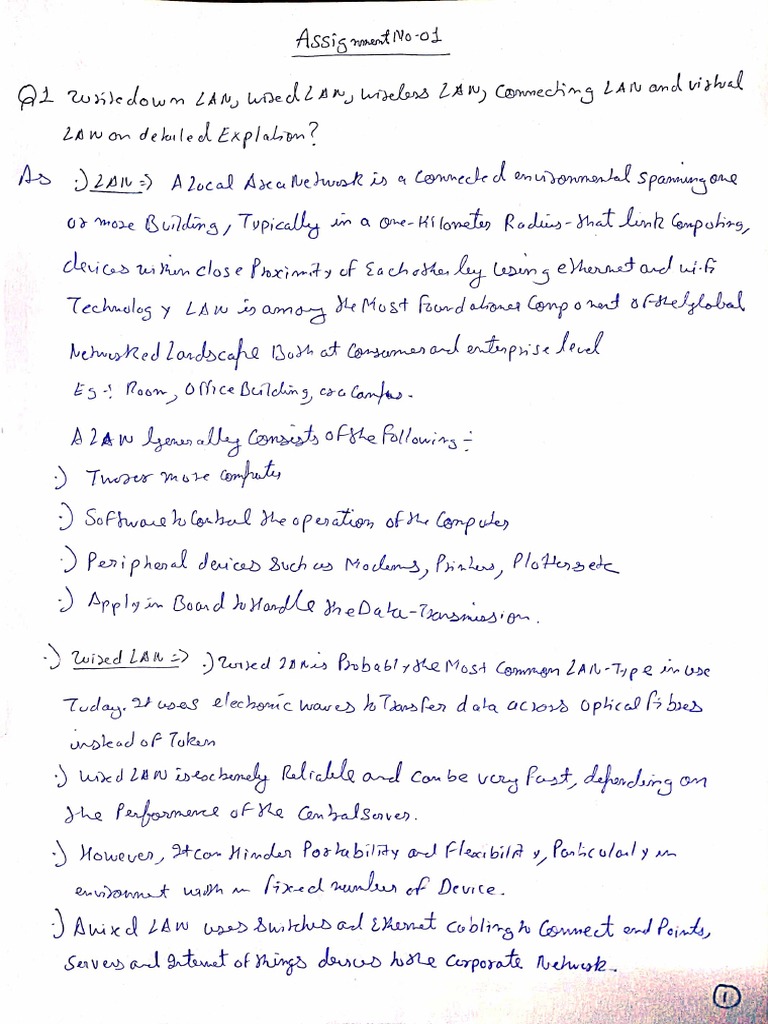 Assignment No-01
Q1 Write down LAN, wired LAN, wireless LAN, Connecting LAN and virtual
LAN on detailed Explation?
As :) LAN => A local Area Network is a Connected environmental Spanning one
or more Building, Typically in a one-Kilometer Radius-that link Computing,
devices within close Proximity of Each other by Using ethernet and wi-fi
Technology LAN is among the Most foundational Component of the global
Networked landscape Both at Consumer and enterprise level
Eg -: Room, Office Building, or a Campus.
A LAN Generally Consists of the following :-
:) Two or more computer
:) Software to Control the operation of the Computer
:) Peripheral devices Such as Modems, Printers, Plotters etc
:) Apply in Board to Handle the Data-Transmission.
:) Wired LAN => :) Wired LAN is Probably the Most Common LAN-Type in use
Today. It uses electronic waves to Transfer data across optical fibres
instead of Token
:) Wired LAN is extremely Reliable and can be very fast, depending on
the Performance of the Central Server.
:) However, It can Hinder Portability and Flexibility, Particularly in
environment with in fixed number of Device.
:) A wired LAN uses Switches and Ethernet Cabling to Connect end Points,
Servers and Internet of things devices to the Corporate Network.
1